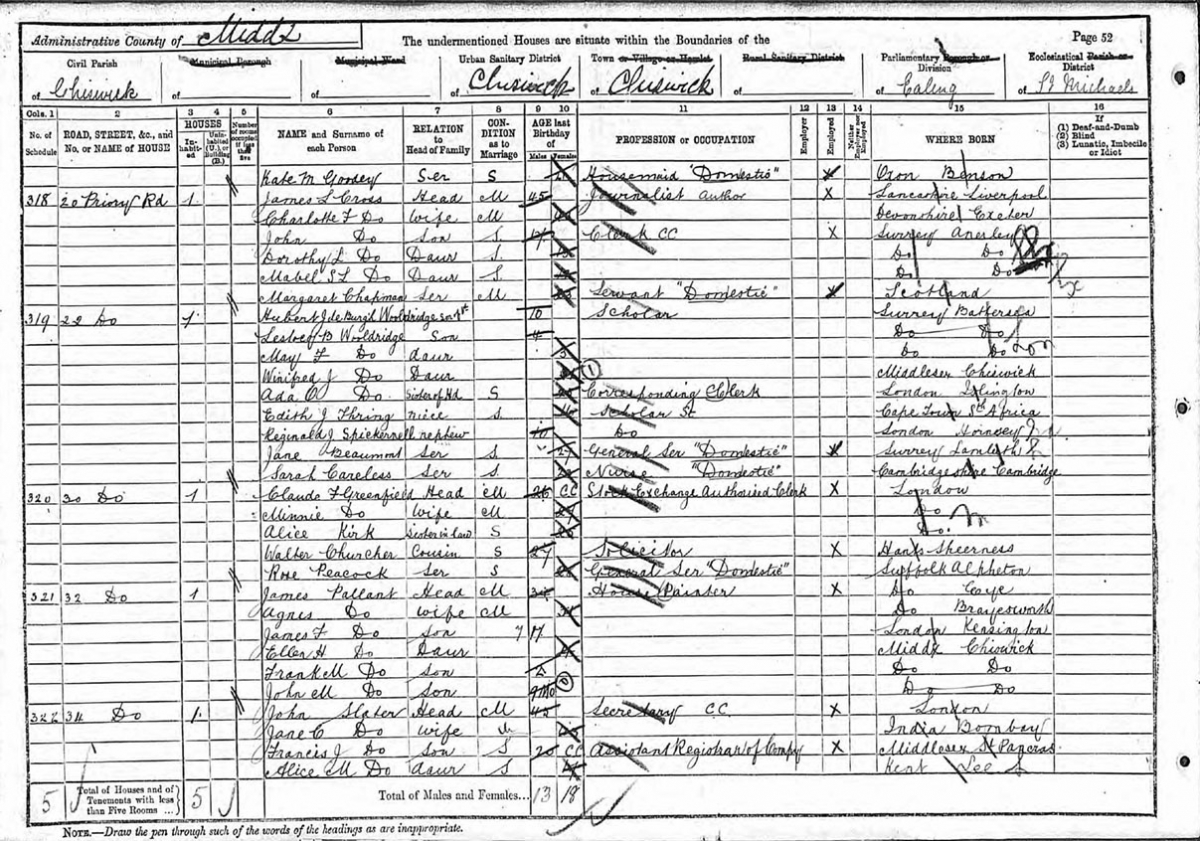 Administrative County of Middx The undermentioned Houses are situate within the Boundaries of the Page 52
Civil Parish Municipal Borough Municipal Ward Urban Sanitary District Town or Village or Hamlet Rural Sanitary District Parliamentary Borough or Division Ecclesiastical Parish or District
of Chiswick of of of Chiswick of Chiswick of of Ealing of St Michaels
Cols. 1 2 3 4 5 6 7 8 9 10 11 12 13 14 15 16
No. of Schedule ROAD, STREET, &c., and No. or NAME of HOUSE HOUSES Inhabited Uninhabited (U.) or Building (B.) Number of rooms occupied if less than five NAME and Surname of each Person RELATION to Head of Family CONDITION as to Marriage AGE last Birthday of Males Females PROFESSION or OCCUPATION Employer Employed Neither Employer nor Employed WHERE BORN If (1) Deaf-and-Dumb (2) Blind (3) Lunatic, Imbecile or Idiot
Kate M Goodey Ser S Housemaid "Domestic" X Oxon Benson
318 20 Priory Rd 1 James L Cross Head M 45 Journalist author X Lancashire Liverpool
Charlotte F Do Wife M Devonshire Exeter
John Do Son S 17 Clerk CC X Surrey Anerley
Dorothy L Do Daur S Do Do
Mabel S L Do Daur S Do Do
Margaret Chapman Ser M Servant "Domestic" X Scotland
319 22 Do 1 Hubert J de Burgh Wooldridge 10 Scholar Surrey Battersea
B Wooldridge Son 4 Do Do
May F Do daur Do Do
Winifred J Do Daur Middlesex Chiswick
Ada C Do Sister of Hd S Corresponding Clerk London Islington
Edith J Thring niece S Scholar St Cape Town Sth Africa
Reginald J Spickernell nephew 10 Do London Hornsey
Jane Beaumont Ser S 27 General Ser "Domestic" X Surrey Lambeth
Sarah Careless Ser S Nurse "Domestic" Cambridgeshire Cambridge
320 30 Do 1 Claude F Greenfield Head M 26 CC Stock Exchange Authorised Clerk X London
Minnie Do Wife M Do
Alice Kirk Sister in law S Do
Walter Churcher Cousin S 27 Solicitor X Hants Sheerness
Rose Peacock Ser S General Ser "Domestic" Suffolk Alpheton
321 32 Do 1 James Pallant Head M House Painter X Do Eye
Agnes Do Wife M Do Brayesworth
James F Do Son London Kensington
Ellen H Do Daur Middx Chiswick
Frank M Do Son 2 Do Do
John M Do Son 9mo Do Do
322 34 Do 1 John Slater Head M 45 Secretary CC X London
Jane C Do Wife India Bombay
Francis J Do Son S 20 CC Assistant Registrar of Compy X Middlesex St Pancras
Alice M Do daur S Kent Lee
5 Total of Houses and of Tenements with less than Five Rooms ... 5 Total of Males and Females... 13 18
NOTE.—Draw the pen through such of the words of the headings as are inappropriate.